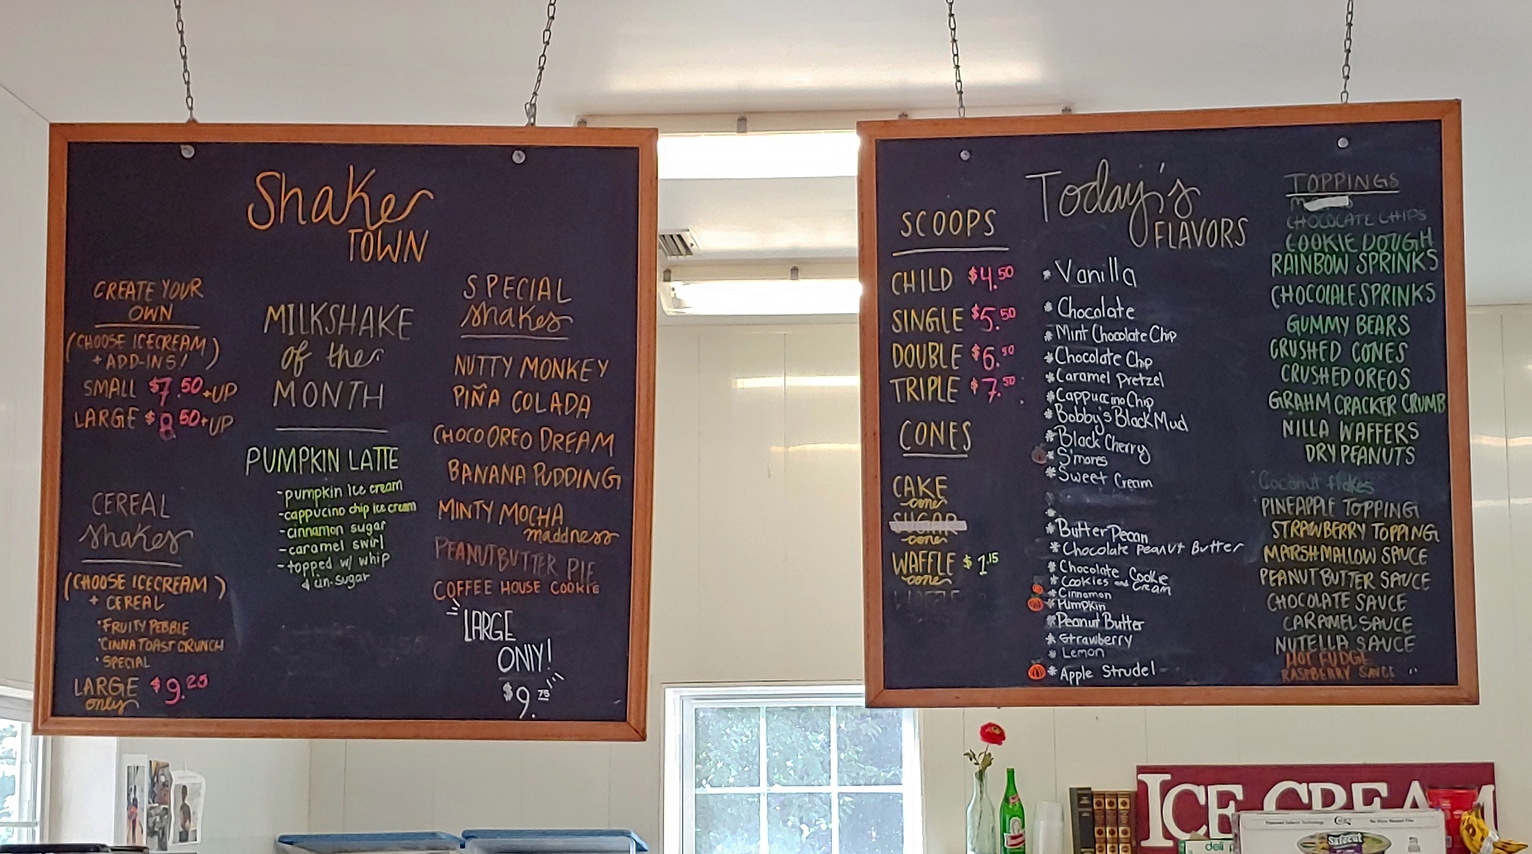 Shaker
TOWN
CREATE YOUR
OWN
(CHOOSE ICECREAM)
+ ADD-INS!
SMALL $7.50+UP
LARGE $8.50+UP
CEREAL
shakes
(CHOOSE ICECREAM)
+ CEREAL
·FRUITY PEBBLE
·CINNA TOAST CRUNCH
·SPECIAL
LARGE $9.25
only
MILKSHAKE
of the
MONTH
PUMPKIN LATTE
-pumpkin ice cream
-cappucino chip ice cream
-cinnamon sugar
-caramel swirl
-topped w/ whip
& cin-sugar
SPECIAL
shakes
NUTTY MONKEY
PIÑA COLADA
CHOCO OREO DREAM
BANANA PUDDING
MINTY MOCHA
maddness
PEANUTBUTTER PIE
COFFEE HOUSE COOKIE
LARGE
ONLY!
$9.75
SCOOPS
CHILD $4.50
SINGLE $5.50
DOUBLE $6.50
TRIPLE $7.50
CONES
CAKE
cone
SUGAR
cone
WAFFLE $1.15
cone
WAFFLE
Today's
FLAVORS
* Vanilla
* Chocolate
* Mint Chocolate Chip
* Chocolate Chip
* Caramel Pretzel
* Cappuccino Chip
* Bobby's Black Mud
* Black Cherry
* S'mores
* Sweet Cream
* Butter Pecan
* Chocolate Peanut Butter
* Chocolate Cookie
* Cookies and Cream
* Cinnamon
* Pumpkin
* Peanut Butter
* Strawberry
* Lemon
* Apple Strudel
TOPPINGS
CHOCOLATE CHIPS
COOKIE DOUGH
RAINBOW SPRINKS
CHOCOLALE SPRINKS
GUMMY BEARS
CRUSHED CONES
CRUSHED OREOS
GIRAHM CRACKER CRUMB
NILLA WAFFERS
DRY PEANUTS
Coconut flakes
PINEAPPLE TOPPING
STRAWBERRY TOPPING
MARSHMALLOW SAUCE
PEANUT BUTTER SAUCE
CHOCOLATE SAUCE
CARAMEL SAUCE
NUTELLA SAUCE
HOT FUDGE
RASPBERRY SAUCE
ICE CREAM
deli
Safecut